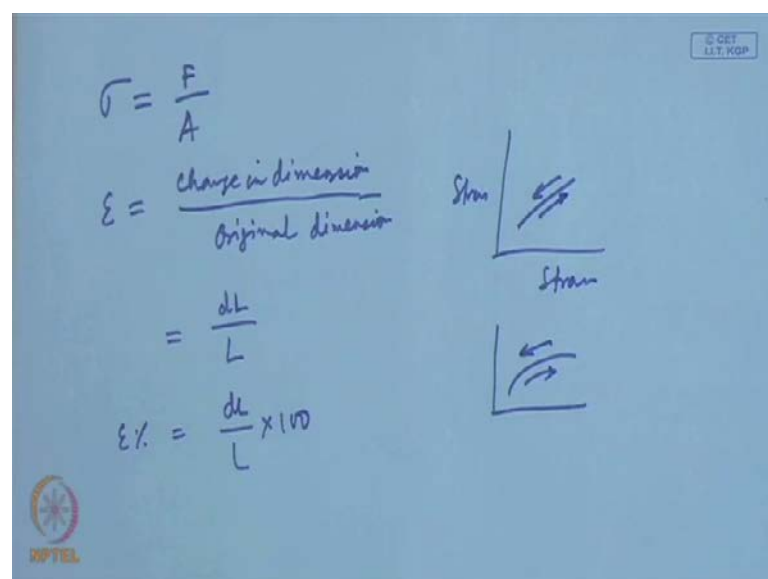 © CET
I.I.T. KGP
σ = F / A
ε = change in dimension / original dimension
= dL / L
ε% = dL / L × 100
Stress
Strain
NPTEL